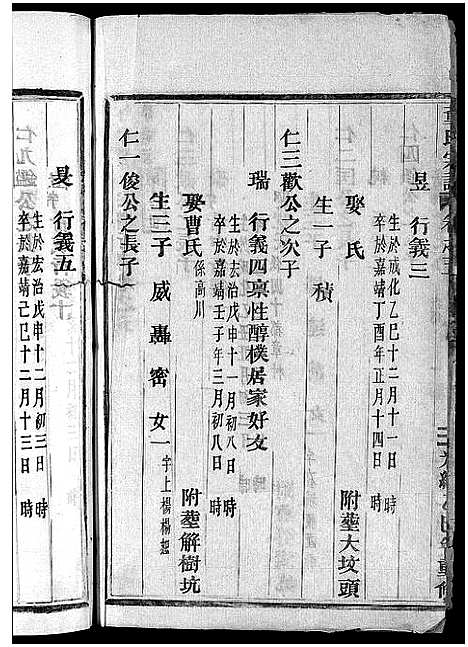 昱 行義三
生於成化乙巳十二月十一日 時
卒於嘉靖丁酉年正月十四日 時
娶 氏 附塟大坟頭
生一子 積
仁三歡公之次子
瑞 行義四禀性醇樸居家好友
生於宏治戊申十一月初八日 時
卒於嘉靖壬子年三月初八日 時
娶曹氏 係高川 附塟解樹坑
生三子 威 轟 密 女一 字上楊楊
仁一俊公之長子
旻 行義五
生於宏治戊申十二月初三日 時
卒於嘉靖己巳十二月十三日 時